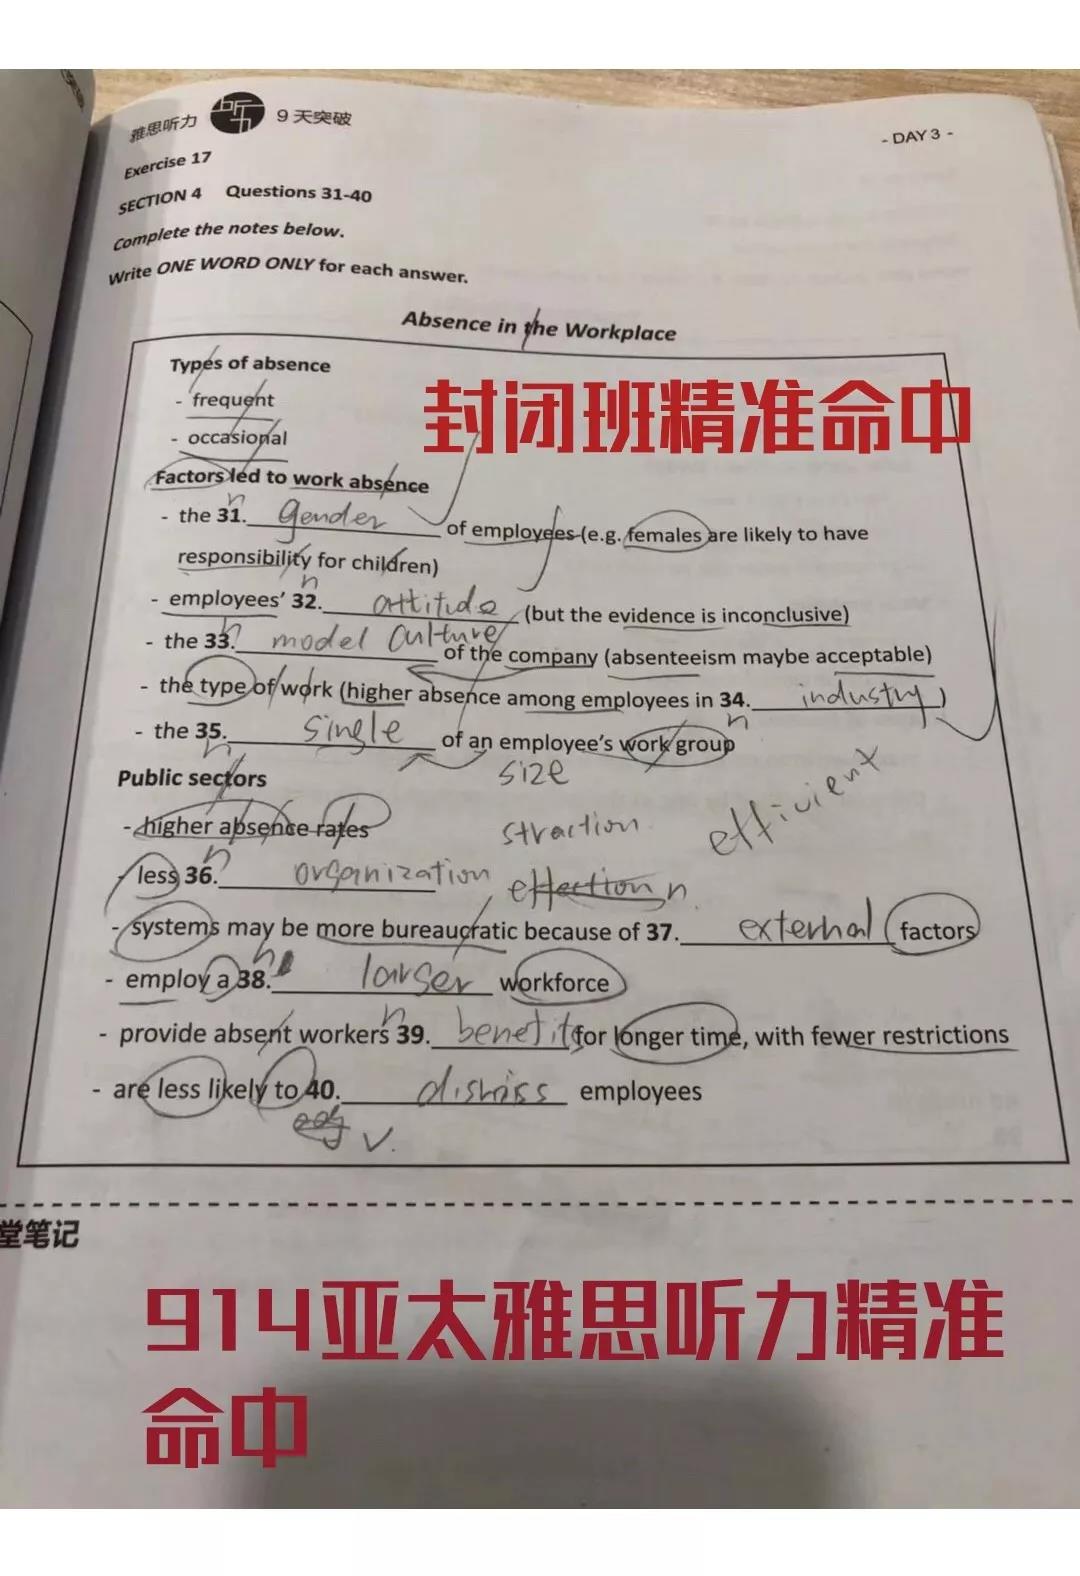 雅思听力 听力 9天突破
- DAY 3 -
Exercise 17
SECTION 4 Questions 31-40
Complete the notes below.
Write ONE WORD ONLY for each answer.
Absence in the Workplace
Types of absence
- frequent
- occasional
封闭班精准命中
Factors led to work absence
n
- the 31. gender of employees (e.g. females are likely to have
responsibility for children)
n
- employees' 32. attitude (but the evidence is inconclusive)
n
- the 33. model culture of the company (absenteeism maybe acceptable)
- the type of work (higher absence among employees in 34. industry)
n
- the 35. single of an employee's work group
n
size
Public sectors
- higher absence rates
straction
efficient
n
- less 36. organization effection n.
- systems may be more bureaucratic because of 37. external factors
n
- employ a 38. larger workforce
n
- provide absent workers 39. benefits for longer time, with fewer restrictions
- are less likely to 40. dismiss employees
adj v.
堂笔记
914亚太雅思听力精准
命中